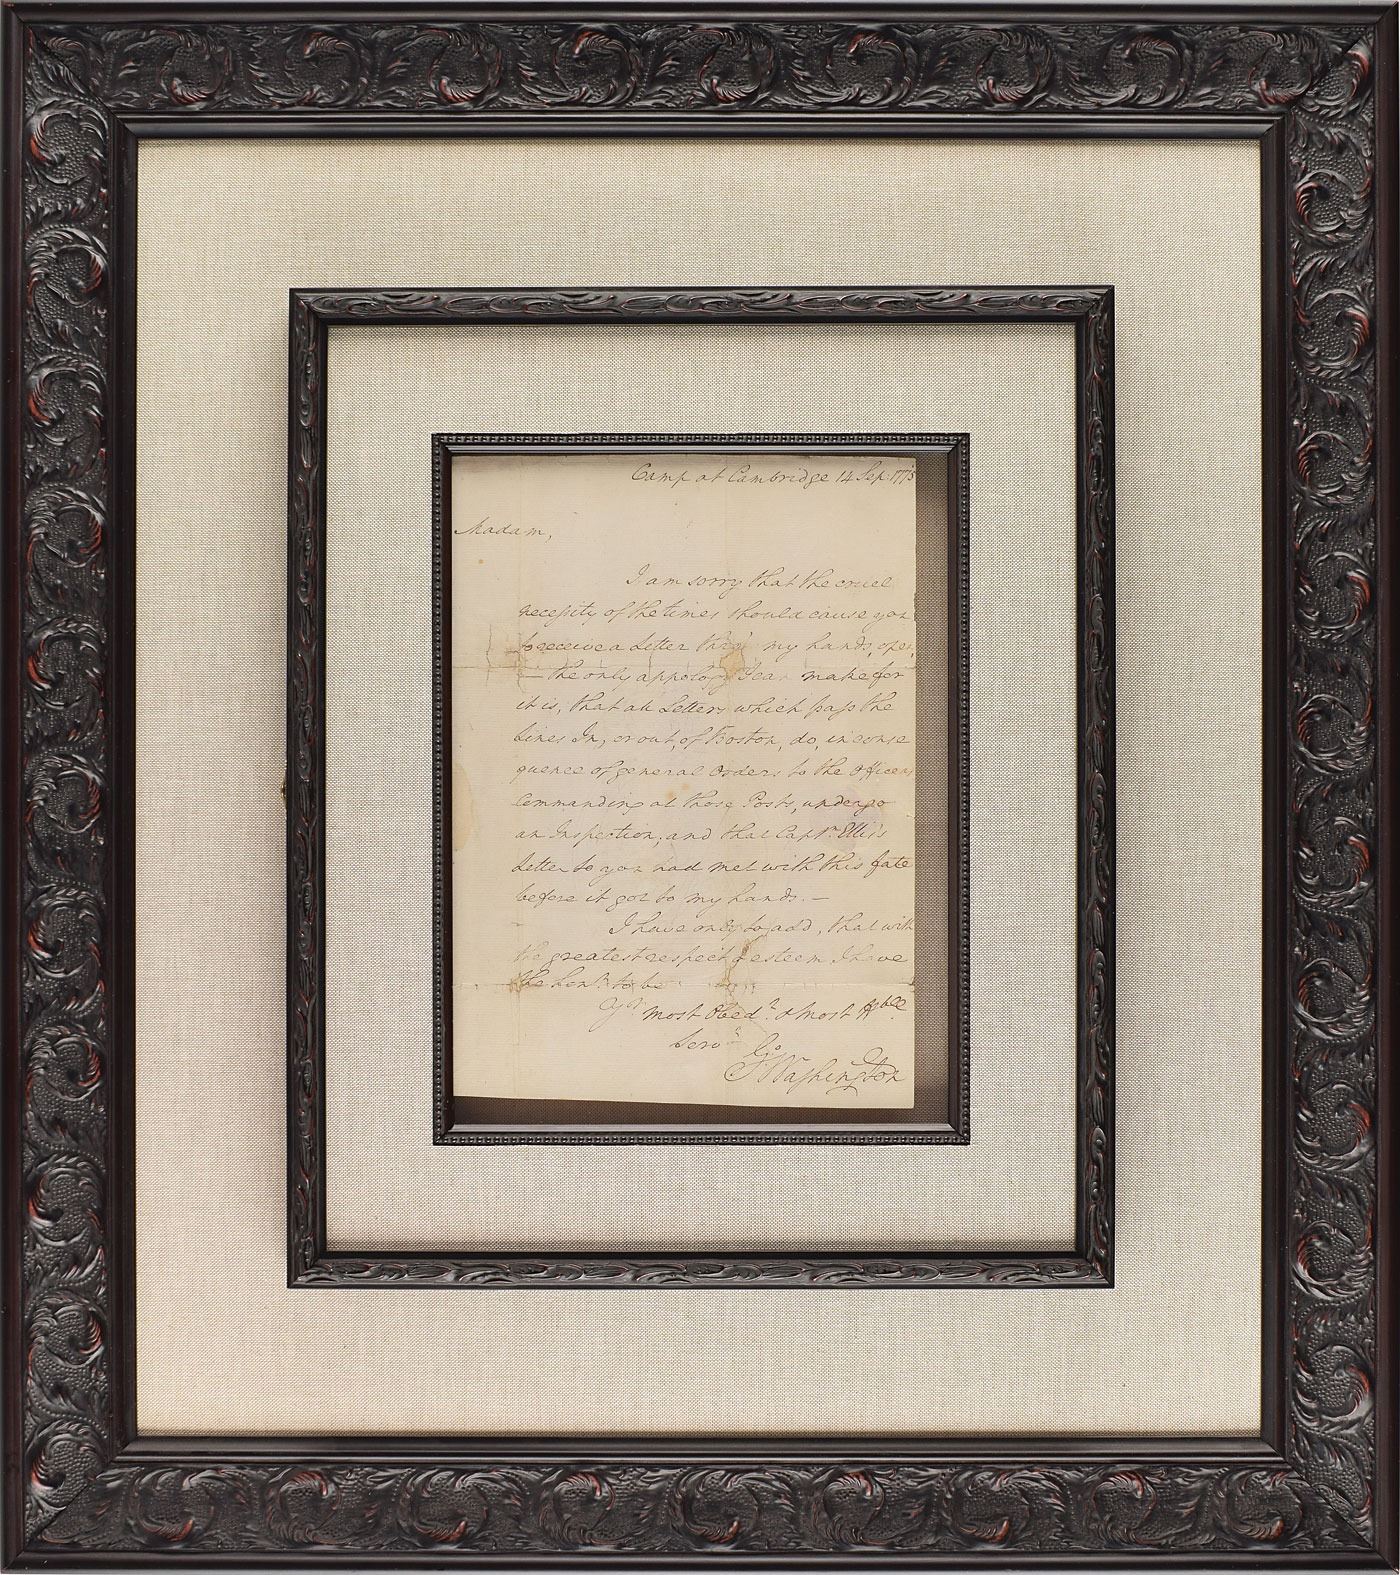 Camp at Cambridge 14 Sep: 1775
Madam,
I am sorry that the cruel
necessity of the times should cause you
to receive a Letter thro' my hands, open,
— the only appology I can make for
it is, that all Letters which pass the
Lines In, or out, of Boston, do, in conse
quence of general Orders to the Officers
Commanding at those Posts, undergo
an Inspection, and that Captn. Ellis's
Letter to you had met with this fate
before it got to my hands. —
I have only to add, that with
the greatest respect & esteem I have
the honr. to be
Yr most Obedt. & most Hble
Servt.
Go: Washington